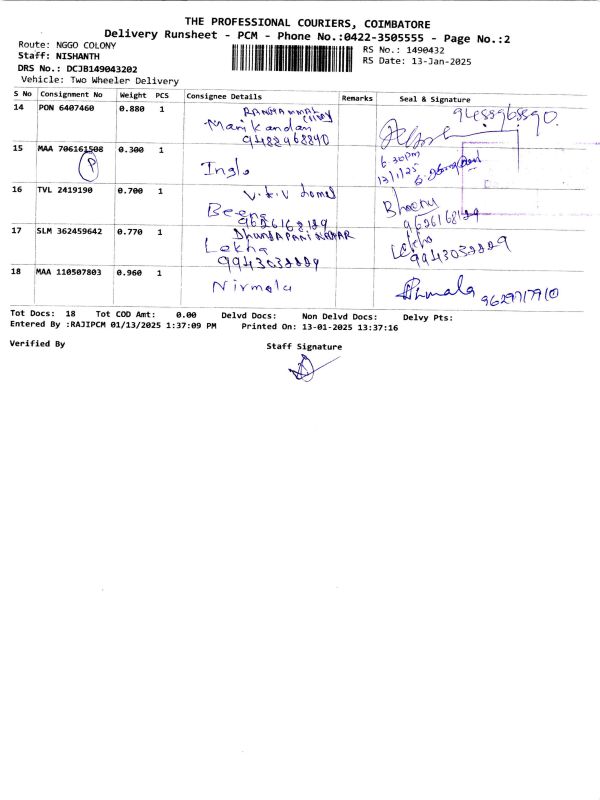 THE PROFESSIONAL COURIERS, COIMBATORE
Delivery Runsheet - PCM - Phone No.:0422-3505555 - Page No.:2
Route: NGGO COLONY
Staff: NISHANTH
DRS No.: DCJB149043202
Vehicle: Two Wheeler Delivery
RS No.: 1490432
RS Date: 13-Jan-2025
S No Consignment No Weight PCS Consignee Details Remarks Seal & Signature
14 PON 6407460 0.880 1
Manikandan
15 MAA 706161508 0.300 1
P
6.30pm
13/1/25
16 TVL 2419190 0.700 1
Beena
9626168129
17 SLM 362459642 0.770 1
Lekha Lekha
9943032229 9943032229
18 MAA 110507803 0.960 1 Nirmala Nirmala 9629717910
Tot Docs: 18 Tot COD Amt: 0.00 Delvd Docs: Non Delvd Docs: Delvy Pts:
Entered By :RAJIPCM 01/13/2025 1:37:09 PM Printed On: 13-01-2025 13:37:16
Verified By Staff Signature